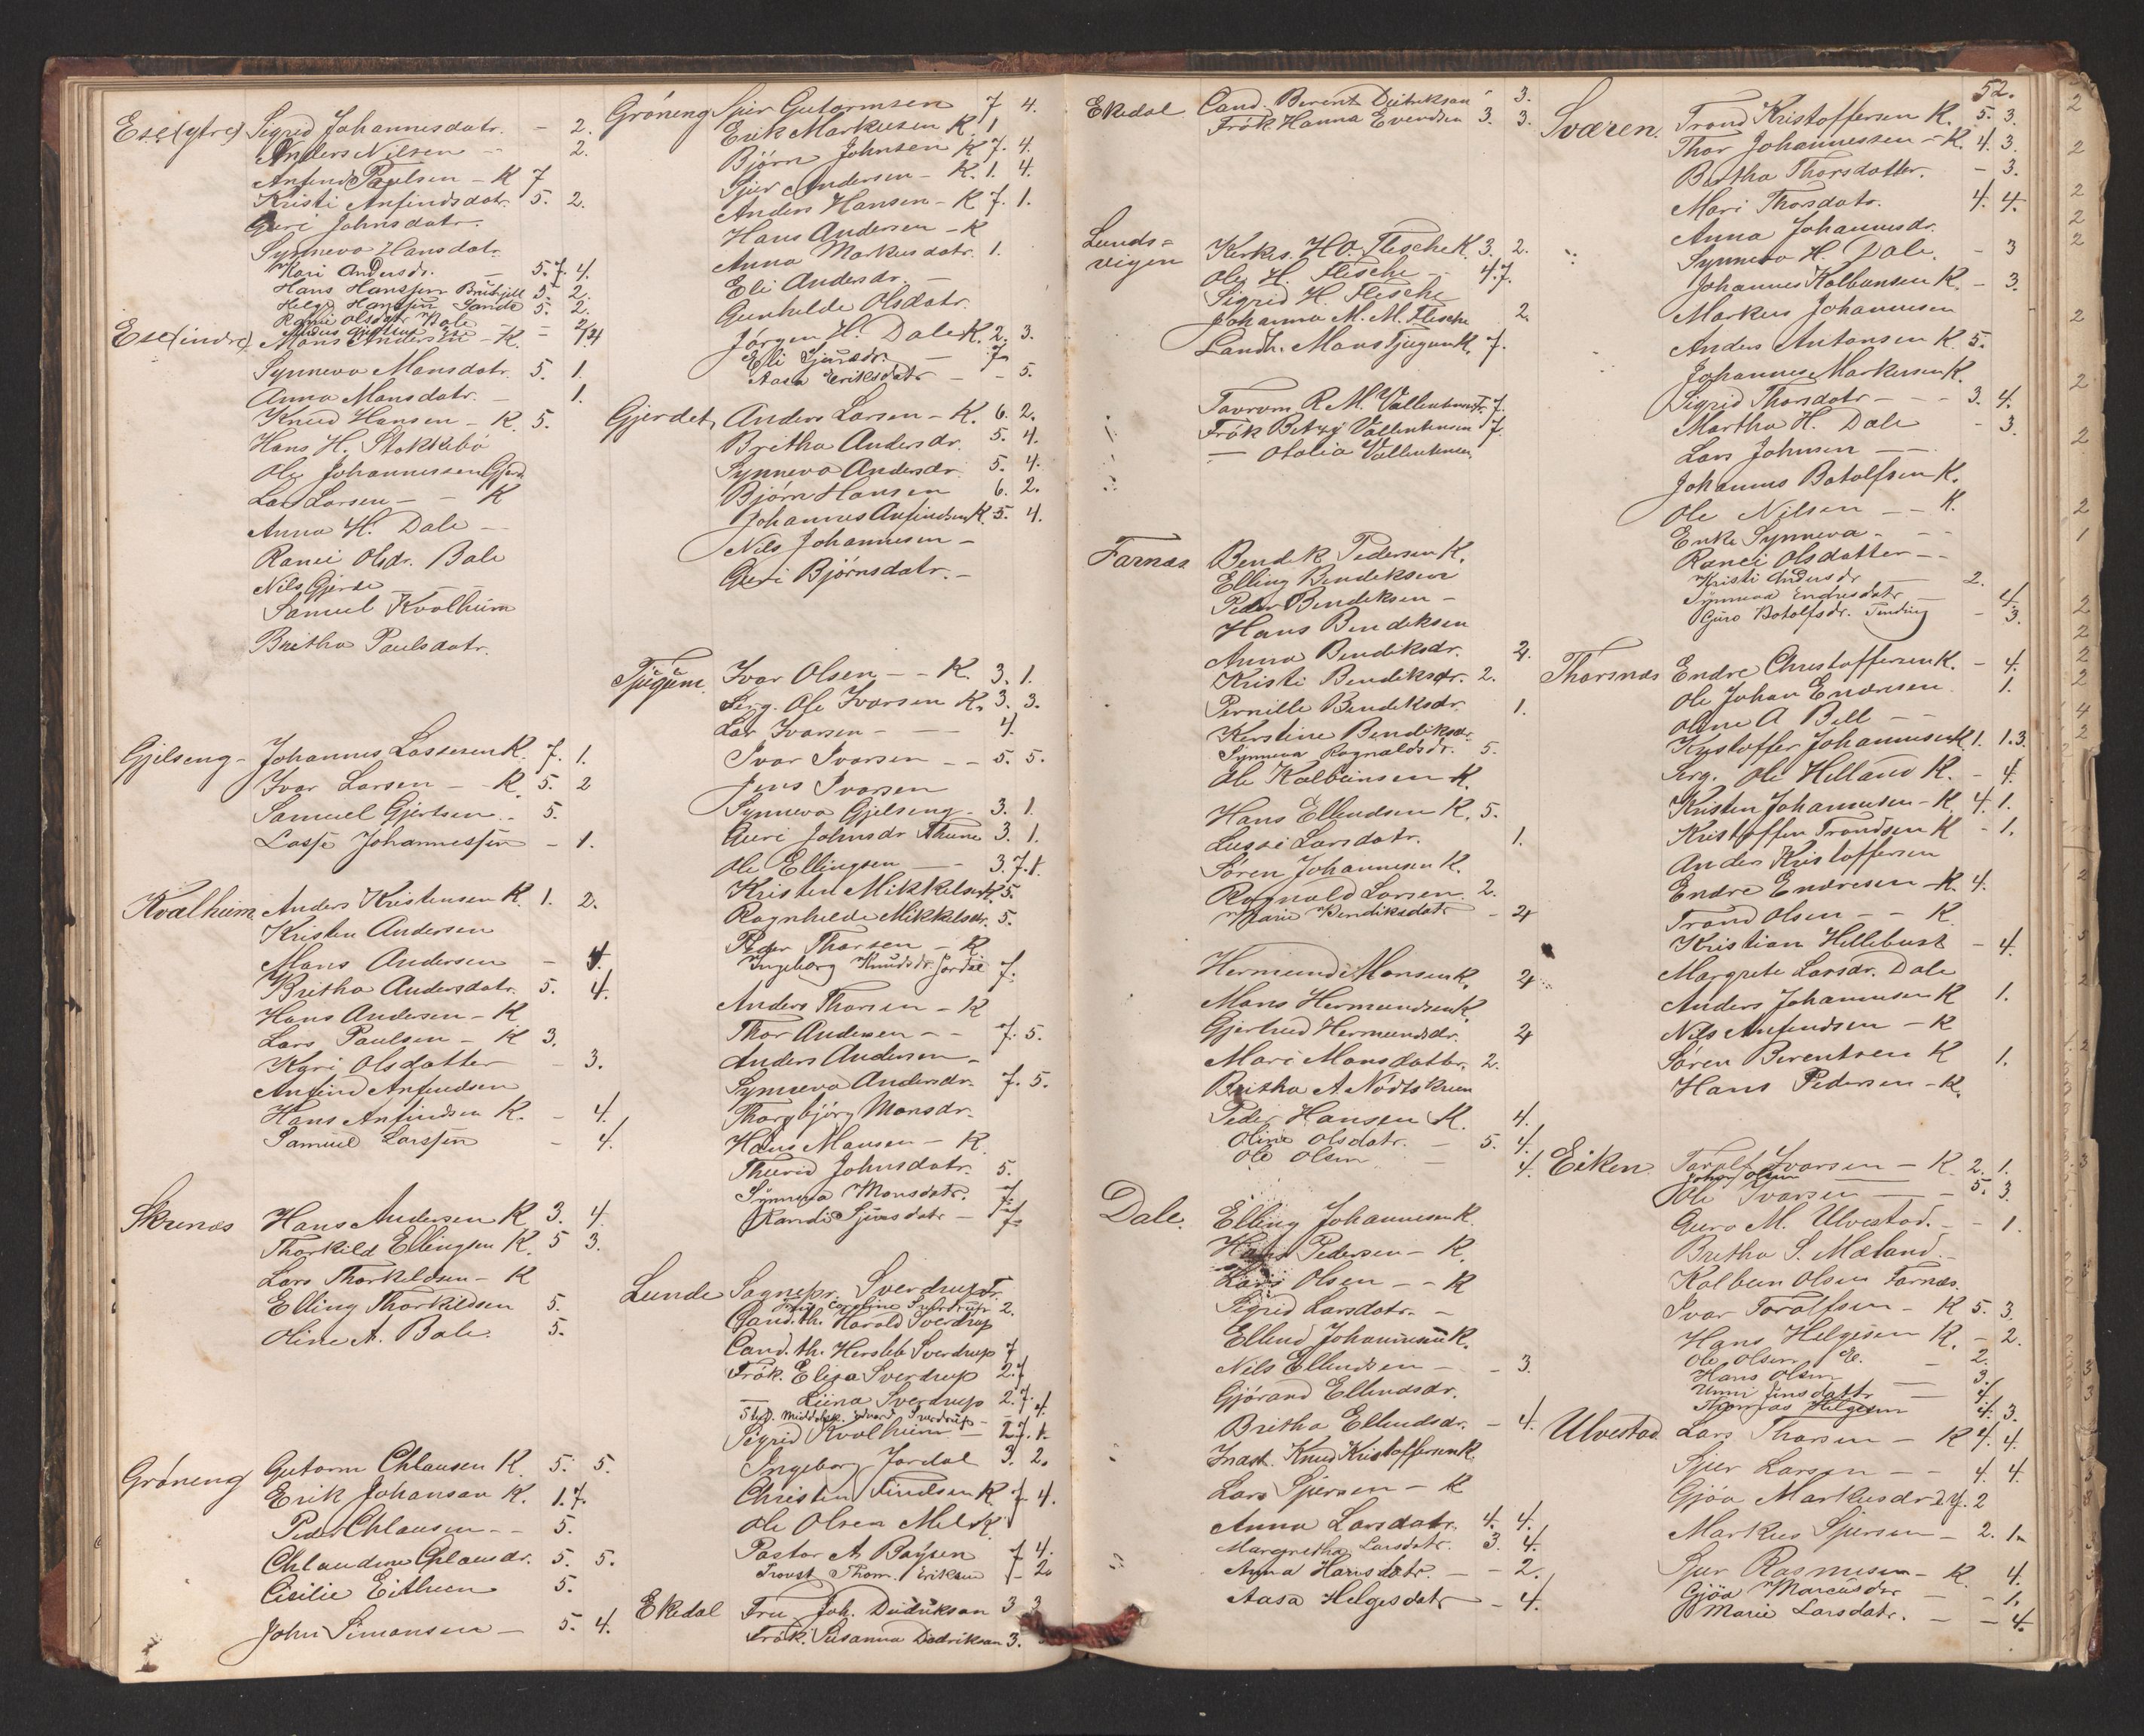 Ese (ytre) Sigrid Johannesdatr. - 2.
Anders Nilsen - 2.
Anfind Paulsen - K 7
Kristi Anfindsdatr. 5. 2.
Guri Johnsdatr.
Synneva Hansdatr.
Kari Andersdr. - 5. 7. 4.
Hans Hanssen 5. 2.
Helge Hanssen Sande 5. 2.
Ranei Olsdatr Bale - 2
Ese (indre) Mons Andersen - K.
Synneva Monsdatr. 5. 1.
Anna Monsdatr. - 1.
Knud Hansen - K. 5.
Hans H. Stokkebö
Ole Johannessen Gjerd
Lars Larsen - - K
Anna H. Dale -
Ranei Olsdr. Bale
Nils Gjerde
Samuel Kvalheim
Britha Paulsdatr.
Gjelseng - Johannes Lassesen K. 7. 1.
Ivar Larsen - K. 5. 2
Samuel Gjertsen - 5.
Lasse Johannessen - 1.
Kvalheim Anders Kristensen K. 1. 2.
Kristen Andersen
Mons Andersen - 4.
Britha Andersdatr. 5. 4.
Hans Andersen - K
Lars Paulsen - K 3.
Kari Olsdatter - 3.
Anfind Anfindsen
Hans Anfindsen K. - 4.
Samuel Larssen - 4.
Skrenes Hans Andersen K 3. 4.
Thorkild Ellingsen K. 5 3.
Lars Thorkildsen - K
Elling Thorkildsen 5.
Oline A. Bale. 5.
Gröneng Gutorm Chlausen K. 5. 5.
Erik Johansen K. 1. 7.
Peder Chlausen - - 5.
Chlaudine Chlausdr. 5. 5.
Cicilie Eithun 5.
John Simonsen - 5. 4.
Gröneng Sjur Gutormsen 7 4.
Erik Markusen K. 1
Björn Johnsen K 7. 4.
Sjur Andersen - K. 1. 4.
Anders Hansen - K 7. 1.
Hans Andersen - K
Anna Markusdatr. 1.
Eli Andersdr. -
Gunhilde Olsdatr.
Jörgen H. Dale K. 2. 3.
Eli Sjursdr. - 7
Aasa Eriksdatr - - 5.
Gjerdet, Anders Larsen - K. 6. 2.
Britha Andersdr. 5. 4.
Synneva Andersdr. 5. 4.
Björn Hansen 6. 2.
Johannes Anfindsen K. 5. 4.
Nils Johannesen -
Guri Björnsdatr. -
Tjugum. Ivar Olsen - - K. 3. 1.
Serg. Ole Ivarsen K. 3. 3.
Lar Ivarsen - - 4.
Ivar Ivarsen - - 5. 5.
Jens Ivarsen
Synneva Gjelseng - 3. 1.
Guri Johnsdr Thune 3. 1.
Ole Ellingsen - - 3. 7. 1.
Kristen Mikkelsen K. 5.
Ragnhilde Mikkelsdr. 5.
Peder Thorsen - K
Ingeborg Knudsdr. Jordal 7.
Anders Thorsen - K
Thor Andersen - - 7. 5.
Anders Andersen -
Synneva Andersdr. 7. 5.
Thorbjörg Monsdr.
Hans Monsen - K.
Thurid Johnsdatr. 5.
Synneva Monsdatr. 7.
Randi Sjursdatr - 7
Lunde Sognepr. Sverdrup Fr.
Caroline Sverdrup 2.
Cand. th. Harald Sverdrup
Cand. th. Hersleb Sverdrup 7
Frök. Elisa Sverdrup 2. 7
— Lina Sverdrup 2. 7. 4.
Stud. Edvard Sverdrup -
Sigrid Kvalheim - 2 7. 1.
Ingeborg Jordal 3. 2.
Christen Findsen K 7 4.
Ole Olsen Mel K.
Pastor A Boysen 7 4.
Provst Thom. Eriksen 7 2.
Ekedal Fru Joh. Didriksen 3 3
Frök. Susanna Didriksen 3.
Ekedal Cand. Berent Didriksen 3.
Frök. Hanna Evensen 3. 3.
Lunds=
vigen Kirks. H O. Flesche K. 3. 2.
Ole H. Flesche - 4. 7.
Sigrid H. Flesche
Johanna M. M. Flesche 2.
Landh. Mons Tjugum K. 7.
R. M. Vallentinsen Fr. 7.
Frök Betzy Vallentinsen 7.
— Otalia Vallentinsen
Farnæs Bendik Pedersen K.
Elling Bendiksen
Peder Bendiksen -
Hans Bendiksen
Anna Bendiksdr. 4.
Kristi Bendiksdr. 2.
Pernille Bendiksdr. 1.
Kirstine Bendiksdr.
Synneva Ragnaldsdr. 5.
Ole Kolbeinsen K.
Hans Ellendsen K. 5.
Lussi Larsdatr. 1.
Sören Johannesen K.
Ragnald Larsen 2.
Marie Bendiksdatr - 4
Hermund Monsen K. 4
Mons Hermundsen K.
Gjertrud Hermundsdr. 4
Mari Monsdatter. 2.
Britha A Nödtskreen
Peder Hansen K. 4.
Oline Olsdatr. - 5. 4.
Ole Olsen - 4.
Dale. Elling Johannesen K.
Hans Pedersen - K
Lars Olsen - - K
Sigrid Larsdatr. -
Ellend Johannesen K.
Nils Ellendsen - - 3.
Gjörand Ellendsdr.
Britha Ellendsdr. - 4.
Indst. Knud Kristoffersen K.
Lars Sjursen - K
Anna Larsdatr. 4. 4.
Margretha Larsdatr. 3. 4.
Anna Hansdatr. - - 2.
Aasa Helgesdatr - 4.
52.
Sværen. Trond Kristoffersen K. 5. 3.
Thor Johannessen - K. 4. 3.
Bertha Thorsdatter. - 3.
Mari Thorsdatr. 4. 4.
Anna Johannesdr.
Synneva H. Dale. - 3
Johannes Kolbensen K. - 3.
Markus Johannesen
Anders Antonsen K 5.
Johannes Markusen K.
Sigrid Thorsdatr - - - 3. 4.
Martha H. Dale - 3.
Lars Johnsen - -
Johannes Botolfsen K.
Ole Nilsen - - K.
Enke Synneva - -
Ranei Olsdatter - -
Kristi Andersdr - 2.
Synneva Endresdatr - 4.
Guro Botolfsdr. Tending - 3.
Thorsnæs Endre Christoffersen K. - 4.
Ole Johan Endresen 1.
Oline A Bell - -
Krstoffer Johannesen K 1. 1. 3.
Serg. Ole Helland K. - 4.
Kristen Johannesen - K. 4. 1.
Kristoffer Trondsen K - 1.
Anders Kristoffersen
Endre Endresen - K. 4.
Trond Olsen - - K
Kristian Hellebust - 4.
Margrete Larsdr. Dale
Anders Johannesen K 1.
Nils Anfindsen - K
Sören Berentsen K 1.
Hans Pedersen - K.
Eiken. Torolf Ivarsen - K 2. 1.
Johan Olsen
Ole Ivarsen - - 5. 3.
Guro M. Ulvestad. - - 1.
Britha S. Mæland. -
Kolbein Olsen Farnæs.
Ivar Torolfsen - K 5. 3.
Hans Helgesen K. - 2.
Ole Olsen E. - 2.
Hans Olsen - 3.
Unni Jensdattr - 4.
Thomas Helgesen 4. 3.
Ulvestad. Lars Thorsen - K 4. 4.
Sjur Larsen - - 4. 4.
Gjöa Markusdr 2. 4. 2
Markus Sjursen - 2. 1.
Sjur Rasmusen - K. 4.
Gjöa Marcusdr - - 1.
Marie Larsdatr. - - 4.